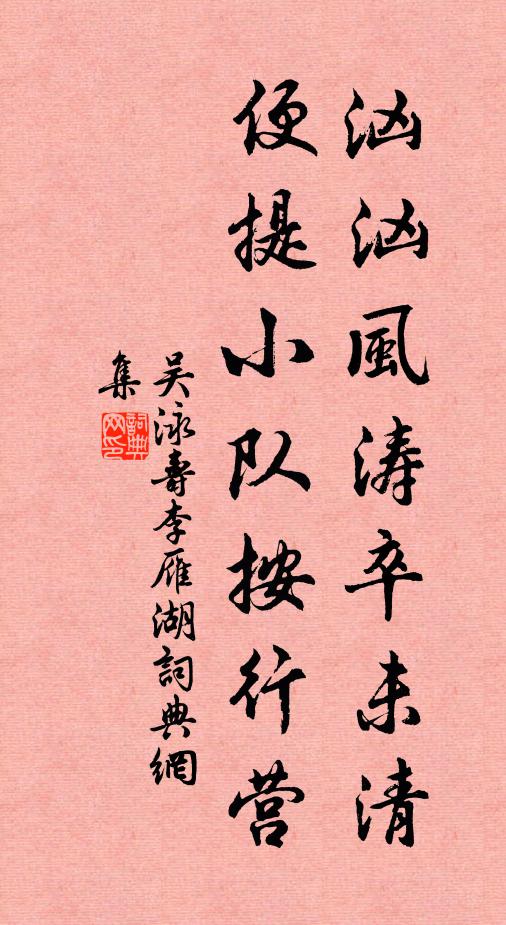 汹汹風涛卒未清
便提小队按行营
吴泳壽李雁湖詞典網
集
詞典网印